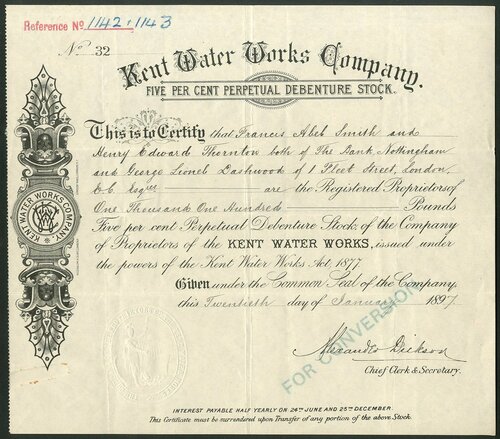 Reference No 1142 : 1143
No 32
Kent Water Works Company.
FIVE PER CENT PERPETUAL DEBENTURE STOCK.
This is to Certify that Francis Abel Smith and
Henry Edward Thornton both of The Bank, Nottingham
and George Lionel Dashwood of 1 Fleet Street, London,
E.C. Esqres are the Registered Proprietors of
One Thousand One Hundred Pounds
Five per cent Perpetual Debenture Stock, of the Company
of Proprietors of the KENT WATER WORKS, issued under
the powers of the Kent Water Works Act, 1877.
Given under the Common Seal of the Company,
this Twentieth day of January 1897
FOR CONVERSION
Alexander Dickson
Chief Clerk & Secretary.
INTEREST PAYABLE HALF YEARLY ON 24TH JUNE AND 25TH DECEMBER.
This Certificate must be surrendered upon Transfer of any portion of the above Stock.
KENT WATER WORKS COMPANY